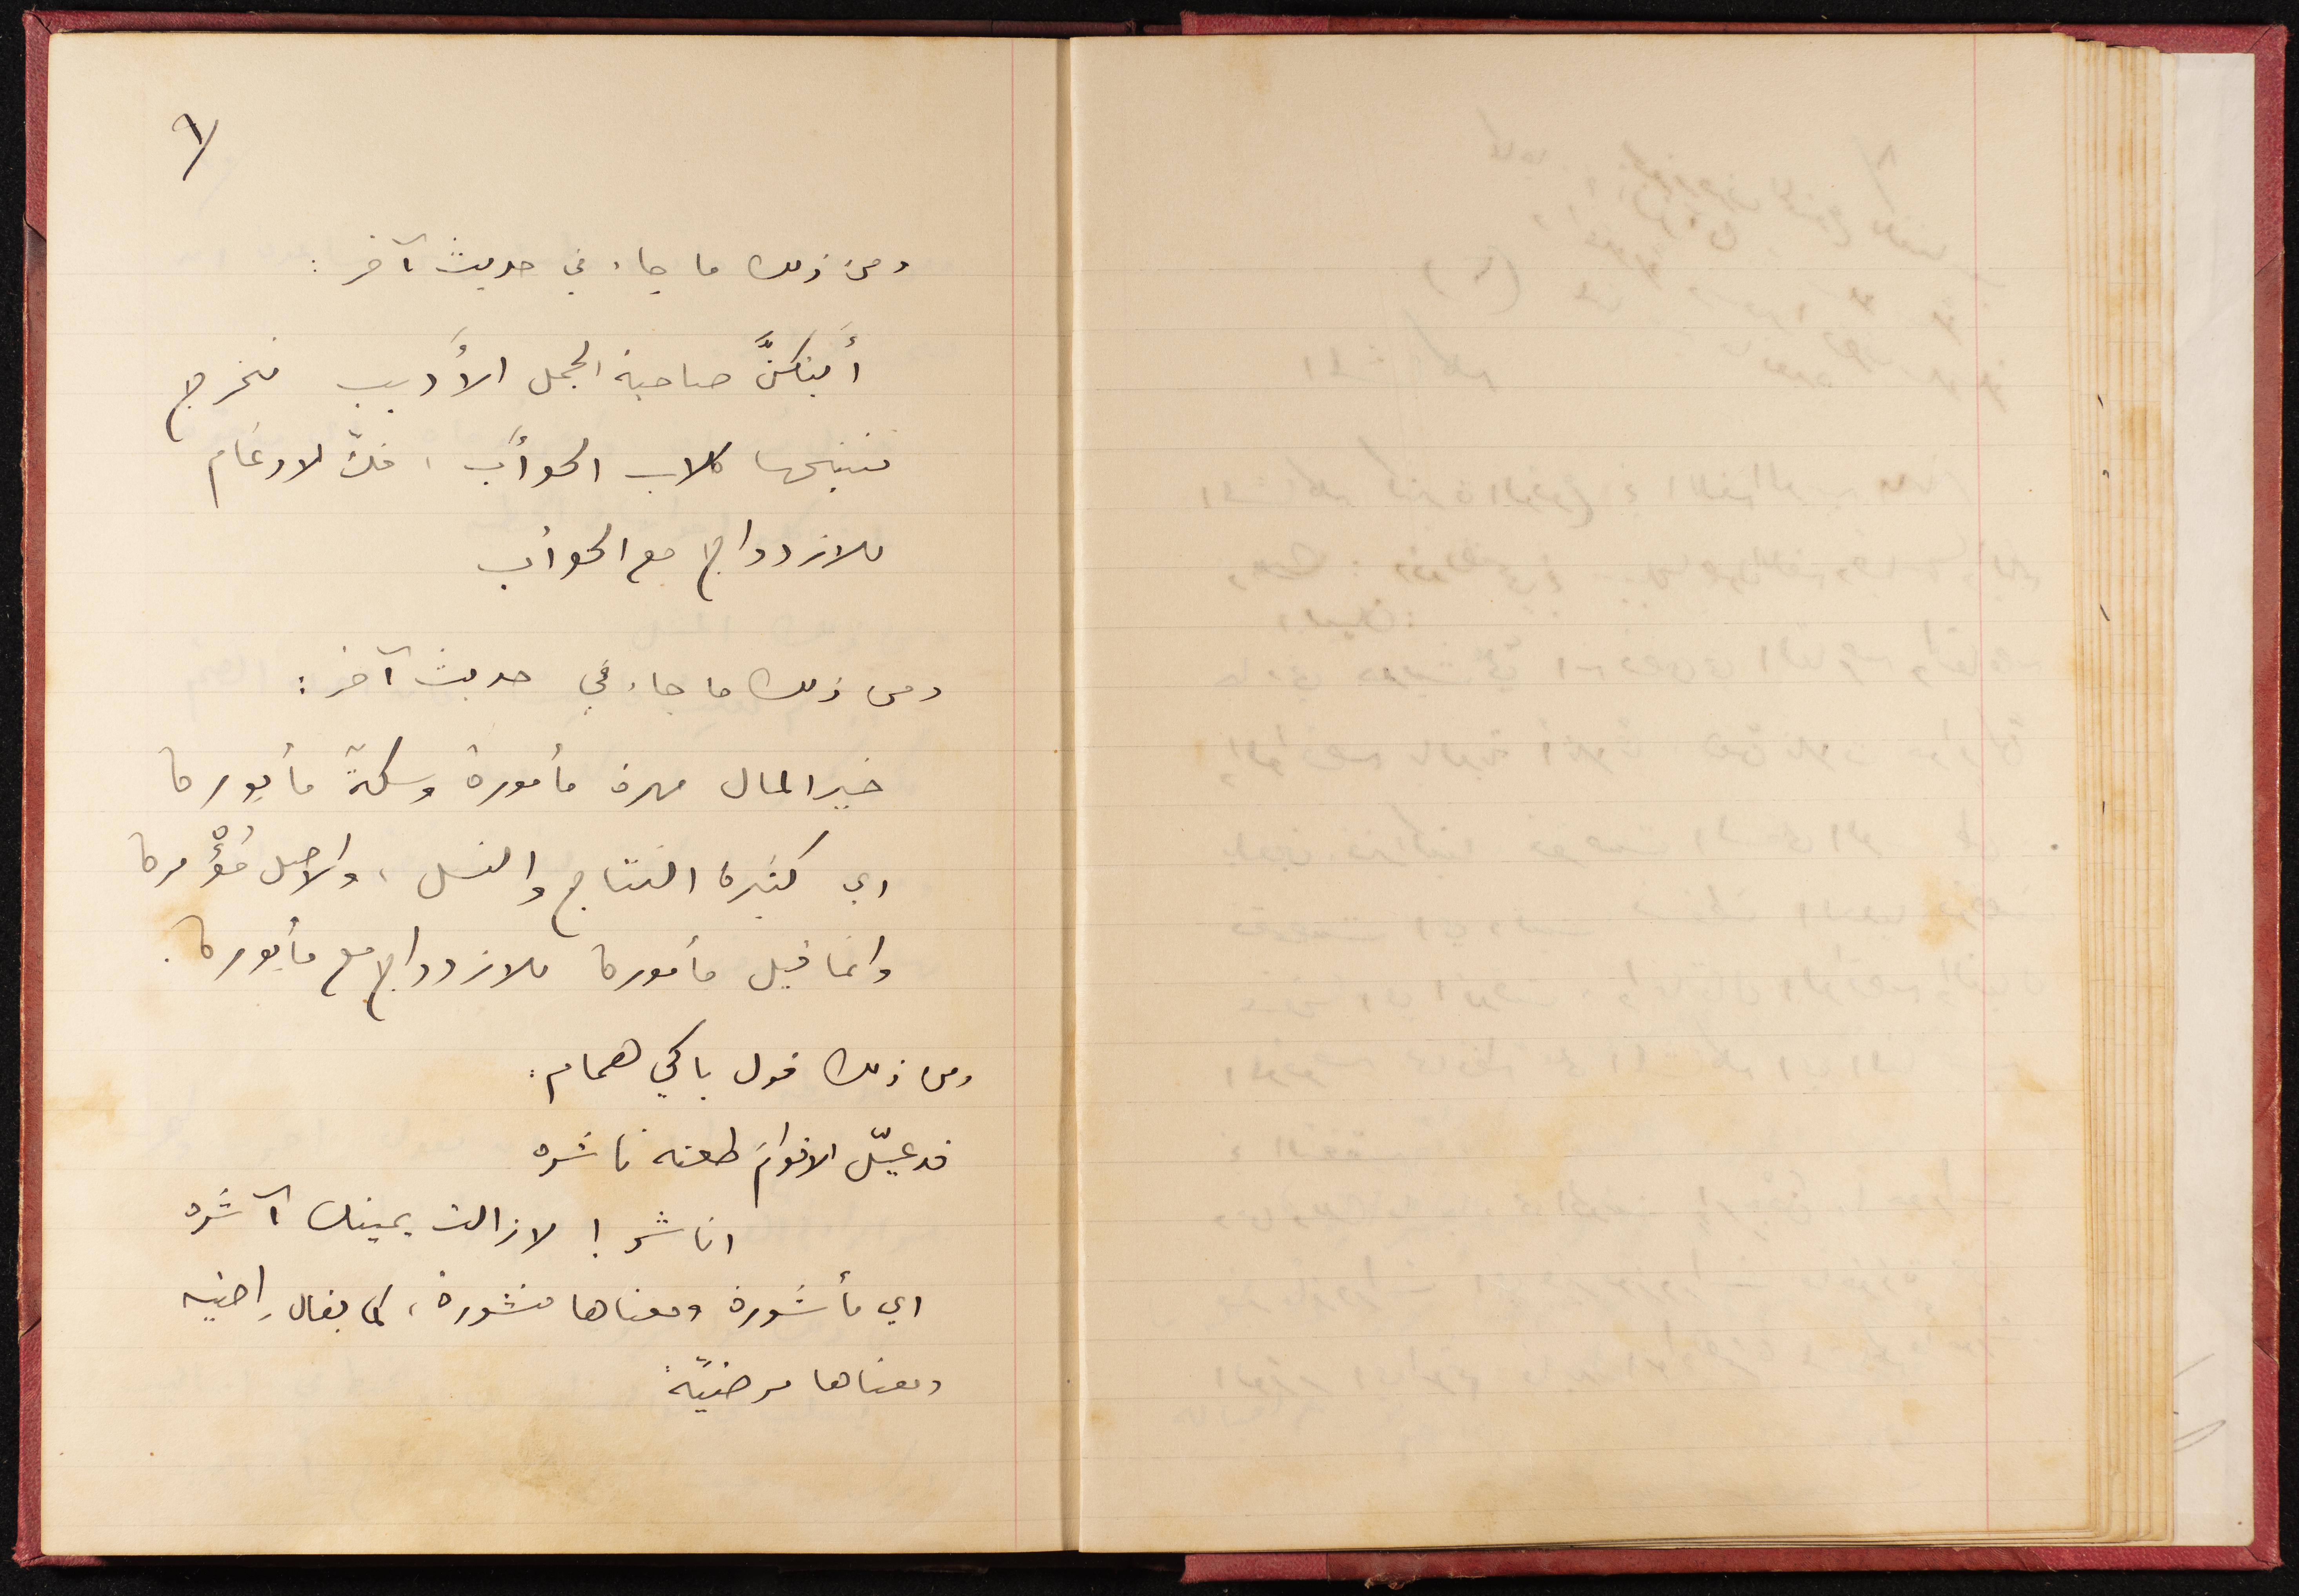 ٩
ومن ذلك ما جاء في حديث آخر :
أيتكنَّ صاحبة الجمل الأَدبب تخرج
فتنبحها كلاب الحوأَب ، فكّ الادغام
للازدواج مع الحوأب
ومن ذلك ما جاء في حديث آخر :
خير المال مهرة مأمورة وسكة مأبورة
اي كثيرة النتاج والنسل ، والاصل مُؤْمرة
وانما قيل مأمورة للازدواج مع مأبورة .
ومن ذلك قول باكي همام :
قد عيّل الاقوامَ طعنه ناشره
اناشر ! لا زالت يمينك آشره
اي مأشورة ومعناها منشورة ، كما يقال راضيه
ومعناها مرضيّة